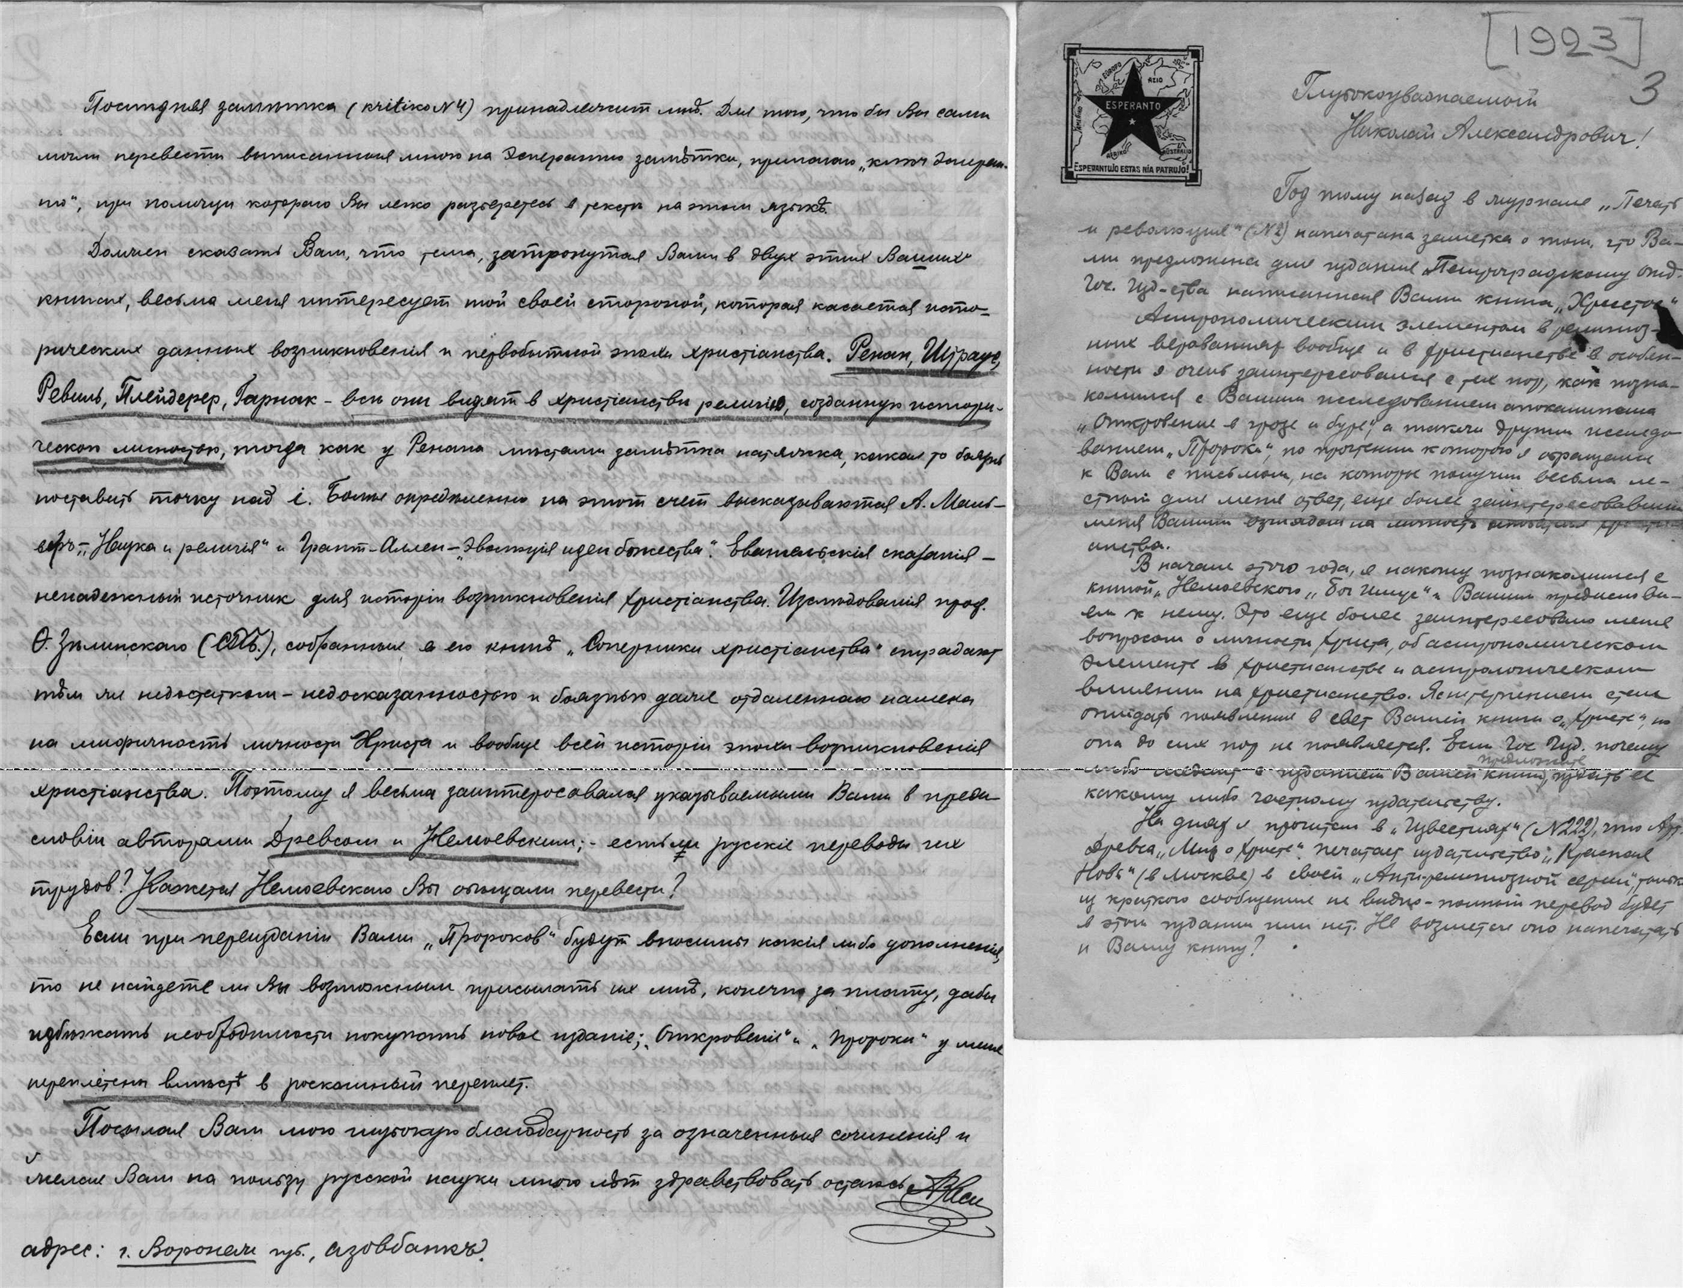 Послѣдняя замѣтка (kritiko N 4) принадлежит мнѣ. Для того, что бы Вы сами
могли перевести выписанныя мною на Эсперанто замѣтки, прилагаю „ключ Эсперан-
то", при помощи котораго Вы легко разберетесь в текстѣ на этом языкѣ.
Должен сказать Вам, что тема, затронутая Вами в двух этих Ваших
книгах, весьма меня интересует той своей стороной, которая касается исто-
рических данных возникновенія и первобытной эпохи христіанства. Ренан, Штраус,
Ревиль, Плейдерер, Гарнак - всѣ они видят в христіанствѣ религію, созданную истори-
ческой личностью, тогда как у Ренана мѣстами замѣтна натяжка, какая то боязнь
поставить точку над i. Болѣе опредѣленно на этот счет высказываются А. Маль-
веръ - „Наука и религія" и Грант-Аллен - „Эволюція идеи божества". Евангельскія сказанія -
ненадежный источник для исторіи возникновенія христіанства. Изслѣдованія проф.
Ѳ. Зѣлинскаго (СПБ.), собранныя в его книгѣ „Соперники христіанства" страдают
тѣм же недостатком - недосказанностью и боязнью даже отдаленнаго намека
на мифичность личности Христа и вообще всей исторіи эпохи возникновенія
христіанства. Поэтому я весьма заинтересовался указываемыми Вами в преди-
словіи авторами Древсом и Немоевским; - есть ли русскіе переводы их
трудов? Кажется Немоевскаго Вы обѣщали перевести?
Если при переизданіи Вами „Пророков" будут вносимы какія либо дополненія,
то не найдете ли Вы возможным присылать их мнѣ, конечно за плату, дабы
избѣжать необходимости покупать новое изданіе; „Откровеніе" и „Пророки" у меня
переплетены вмѣстѣ в роскошный переплет.
Посылая Вам мою глубокую благодарность за означенныя сочиненія и
желая Вам на пользу русской науки много лѣт здравствовать остаюсь
адрес: г. Воронеж губ., Азовбанкъ.
[1923]
3
EUROPO
AZIO
ESPERANTO
AFRIKO
AUSTRALIO
ESPERANTUJO ESTAS NIA PATRUJO!
Глубокоуважаемый
Николай Александрович!
Год тому назад в журнале „Печать
и революция" (N2) напечатана заметка о том, что Ва-
ми предложена для издания Петроградскому отд.
Гос. Изд-ства написанная Вами книга „Христос"
Астрономическим элементом в религиоз-
ных верованиях вообще и в христианстве в особен-
ности я очень заинтересовался с тех пор, как позна-
комился с Вашим исследованием апокалипсиса
„Откровение в грозе и буре", а также другим исследо-
ванием „Пророки", по прочтении которого я обращался
к Вам с письмом, на которое получил весьма ле-
стный для меня ответ, еще более заинтересовавший
меня Вашим взглядом на личность
анства.
В начале этого года, я наконец познакомился с
книгой Немоевского „Бог Иисус" и Вашим предислови-
ем к нему. Это еще более заинтересовало меня
вопросом о личности Христа, об астрономическом
элементе в христианстве и астрологическом
влиянии на христианство. Я с нетерпением стал
ожидать появления в свет Вашей книги о „Христе", но
она до сих пор не появляется. Если Гос. Изд. почему
предложите
либо медлит с изданием Вашей книги, издать ее
какому либо частному издательству.
На днях я прочитал в „Известиях" (N222), что Арт.
Древса „Миф о Христе" печатает издательство „Красная
Новь" (в Москве) в своей „Анти-религиозной серии", только
из краткого сообщения не видно - полный перевод будет
в этом издании или нет. Не возьмется оно напечатать
и Вашу книгу?